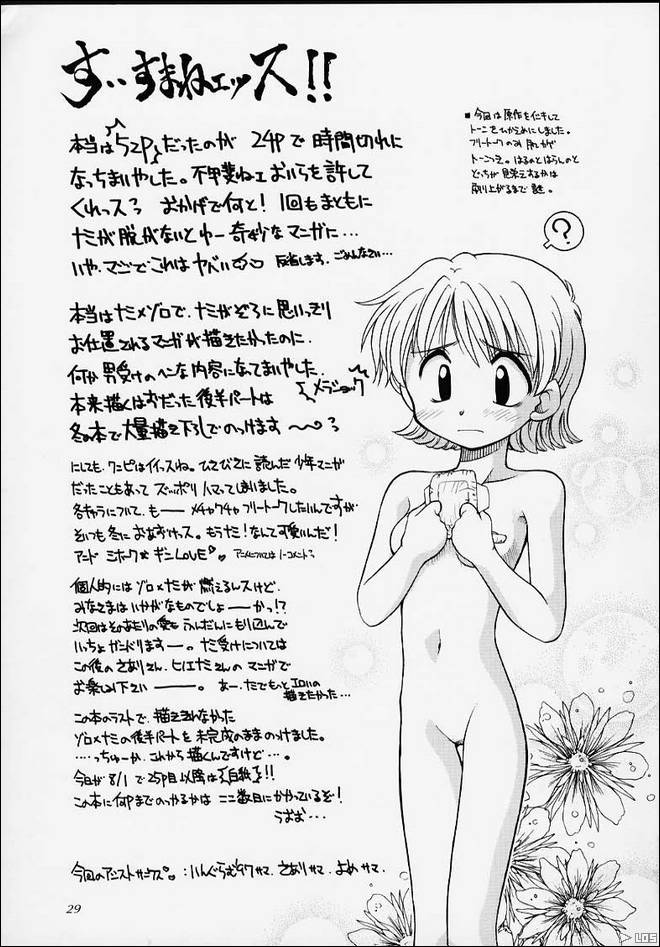 すいすまねェッス!!
本当は52Pだったのが 24Pで時間切れに
なっちまいやした。不甲斐ねェおいらを許して
くれっス おかげで何と！1回もまともに
ナミが脱がないとゆー奇妙なマンガに…
いや、マジでこれはヤバい 反省します。ごめんなさい…
本当はナミ×ゾロで、ナミがぞろに思いっきり
お仕置されるマンガが描きたかったのに、
何か男受けのへんな内容になってまいやした。
メデショック
本来描くはずだった後半パートは
冬の本で大量描き下ろしでのっけます
にしても、ワンピはイイっスね。ひさびさに読んだ少年マンガ
だったこともあって ズッポリハマってしまいました。
各キャラについて、もー メチャクチャフリートークしたいんですが
そいつも冬におあずけっス。もうナミ！なんて可愛いんだ！
アンド ミホーク☆ギンLOVE アニメについてはノーコメント
個人的には ゾロ×ナミが燃えるんスけど、
みなさまはいかがなものでしょーかっ!?
次回はそのあたりの愛もふんだんにもり込んで
いっちょガンバリますー。ナミ受けについては
この後のさありさん、ヒエナミさんのマンガで
お楽しみ下さいー。 あー、ナミでもっとエロいの
描きたかった…
この本のラストで、描ききれなかった
ゾロ×ナミの後半パートを未完成のままのっけました。
……っちゅーか、これから描くんですけど…。
今日が8/1で25P目以降は白紙!!
この本に何Pまでのっかるかは ここ数日にかかっているぞ！
うおお…
今回のアシストサンクス。:いんぐらむ サマ、さありサマ、よめサマ、
■今回は原作を意して
トーンをひかえめにしました。
フリートークのみ
29
LOS